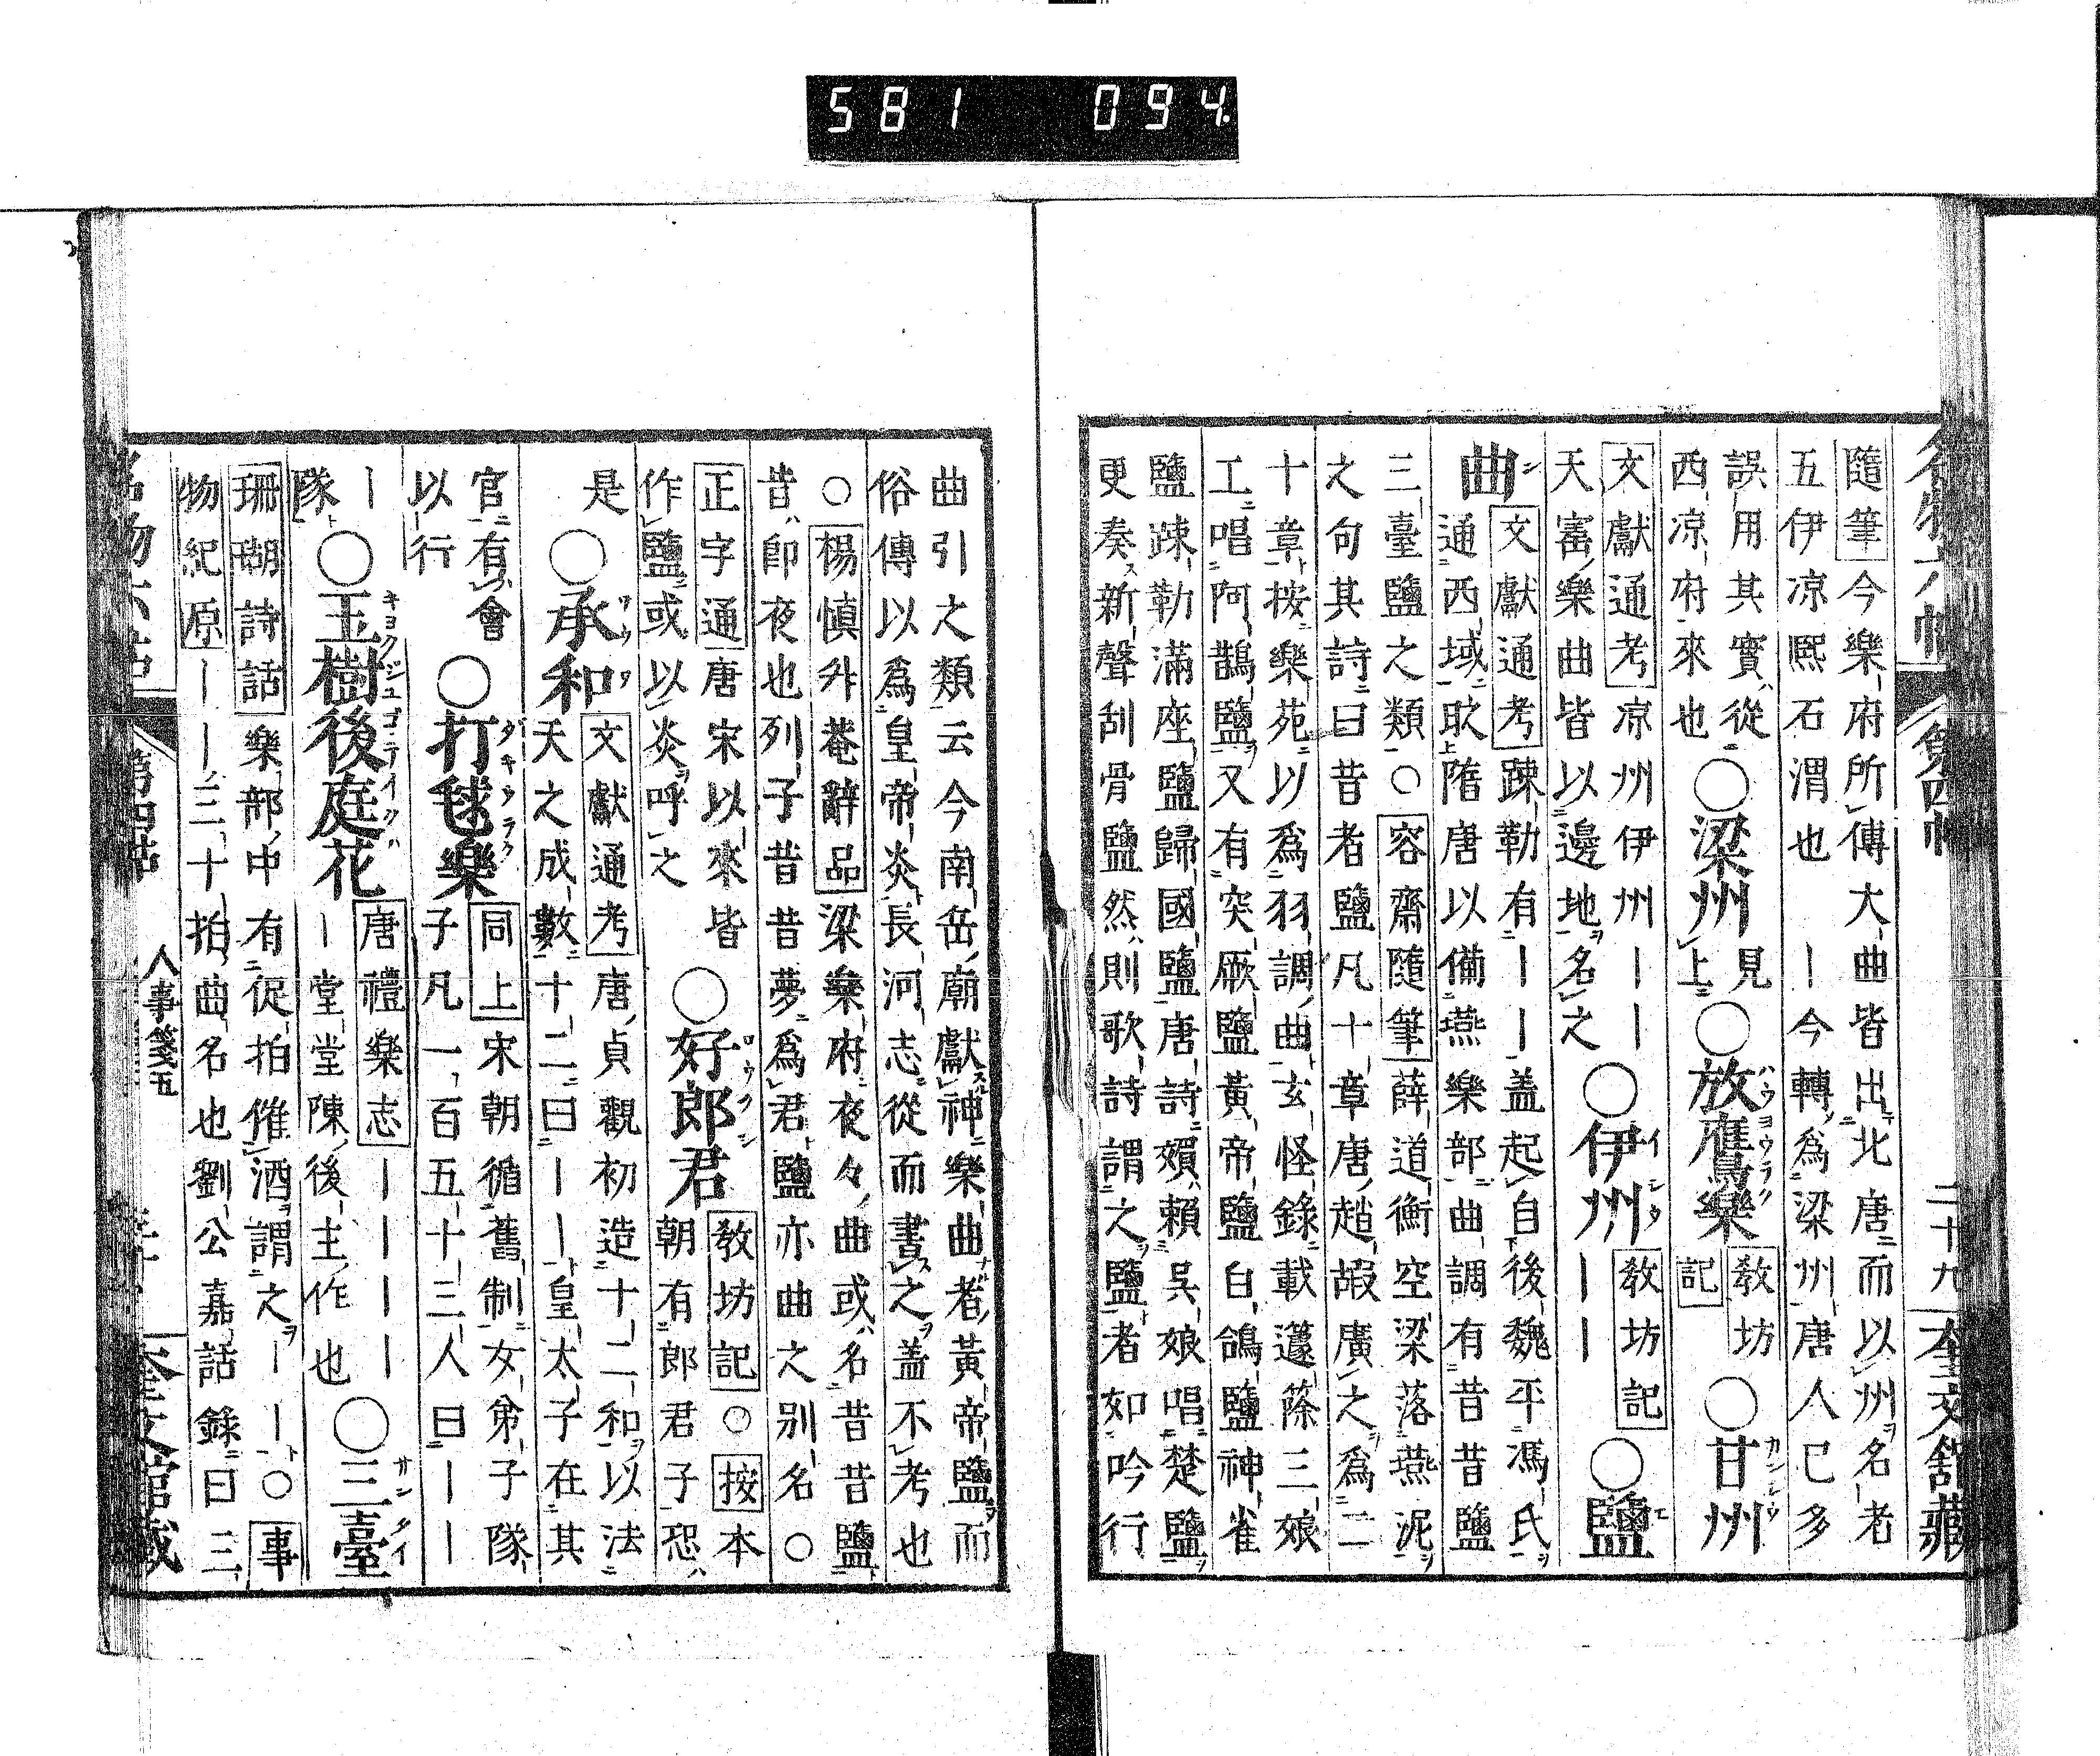 581 094.
隨筆今樂府所傳大曲皆出北唐而以州名者
五伊凉熙石渭也 ー今轉爲梁州唐人已多
誤用其實從
西凉府來也
○梁州見上○放鷹樂教坊記○甘州
文獻通考凉州伊州ーー
天寳樂曲皆以邊地名之
○伊州教坊記ーー○鹽
曲文獻通考踈勒有ーー盖起自後魏平馮氏
通西域㪅隋唐以備燕樂部曲調有昔昔鹽
三臺鹽之類○容齋隨筆薛道衡空梁落燕泥
之句其詩曰昔者鹽凡十章唐趙嘏廣之爲二
十章按樂苑以爲羽調曲玄怪錄載籧篨三娘
工唱阿鵲鹽又有突厥鹽黃帝鹽白鴿鹽神雀
鹽踈勒滿座鹽歸國鹽唐詩媚賴吳娘唱楚鹽
更奏新聲刮骨鹽然則歌詩謂之鹽者如吟行
第四帖 二十九 奎文舘藏
曲引之類云今南岳廟獻神樂曲者黃帝鹽而
俗傳以爲皇帝炎長河志從而書之盖不考也
○楊愼升菴辭品梁樂府夜々曲或名昔昔鹽
昔卽夜也列子昔昔夢爲君鹽亦曲之别名○
正字通唐宋以來皆
作鹽或以炎呼之
○好郎君教坊記○按本
朝有郎君子恐
是○承和文獻通考唐貞觀初造十二和以法
天之成數十二曰ーー皇太子在其
官有會
以行
○打毬樂同上宋朝循舊制女弟子隊
子凡一百五十三人曰ーー
ー
隊
○玉樹後庭花唐禮樂志ーーーー
ー堂堂陳後主作也
○三臺
珊瑚詩話樂部中有促拍催酒謂之ーー○事
物紀原ーー三十拍曲名也劉公嘉話錄曰三
名物六帖 第四帖 人事箋五 奎文舘藏